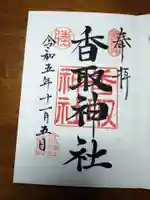 奉拝
香取神社
令和五年十一月五日